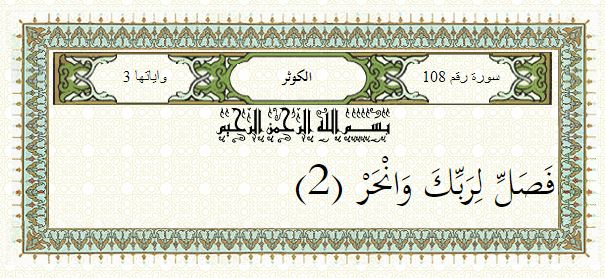 سورة رقم 108 الكوثر واياتها 3
بسم الله الرحمن الرحيم
فَصَلِّ لِرَبِّكَ وَانْحَرْ (2)